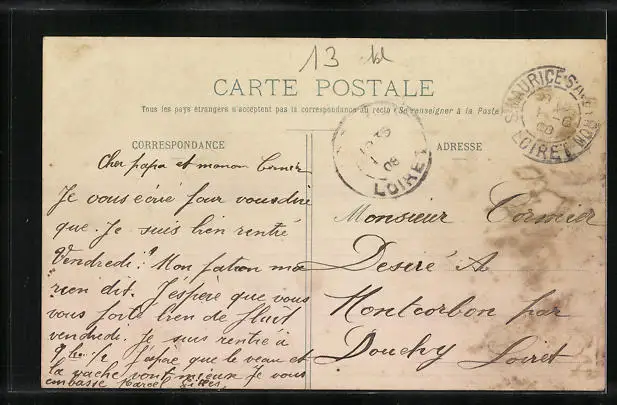 13
CARTE POSTALE
Tous les pays étrangers n'acceptent pas la correspondance au recto (Se renseigner à la Poste)
CORRESPONDANCE
ADRESSE
ST MAURICE S/AVEYRON
LOIRET
08
LOIRET
Cher papa et maman
Je vous écrié pour vous dire
que. Je suis bien rentré
Vendredi. Mon patron ma
rien dit. J'éspère que vous
vous porté bien
vendredi. Je suis rentré à
9 J'éspère que le veau et
la vache vont mieux Je vous
embasse Marcel
Monsieur Cormier
Desiré A
Montcorbon par
Douchy Loiret